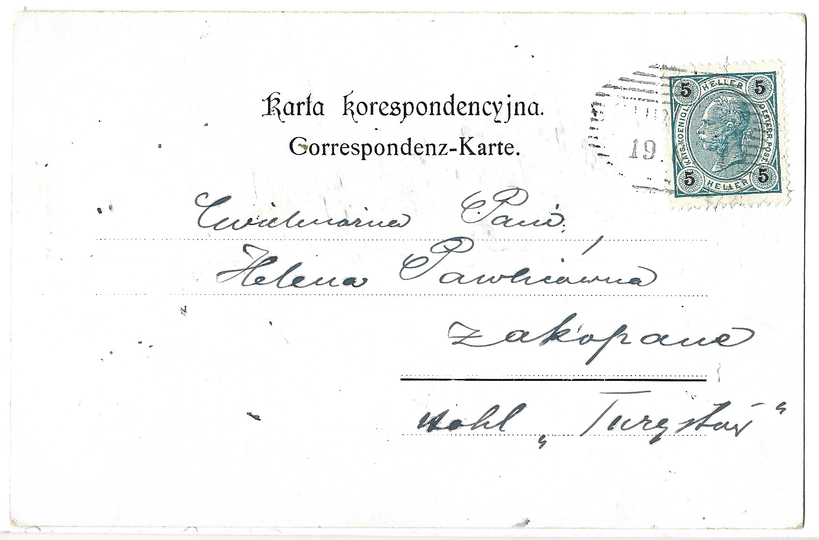 Karta korespondencyjna.
Correspondenz-Karte.
5 HELLER 5
KAIS. KOENIGL. OESTERR. POST.
5 HELLER 5
19
Pani
Helena Pawlicówna
Zakopane
"Turystów"